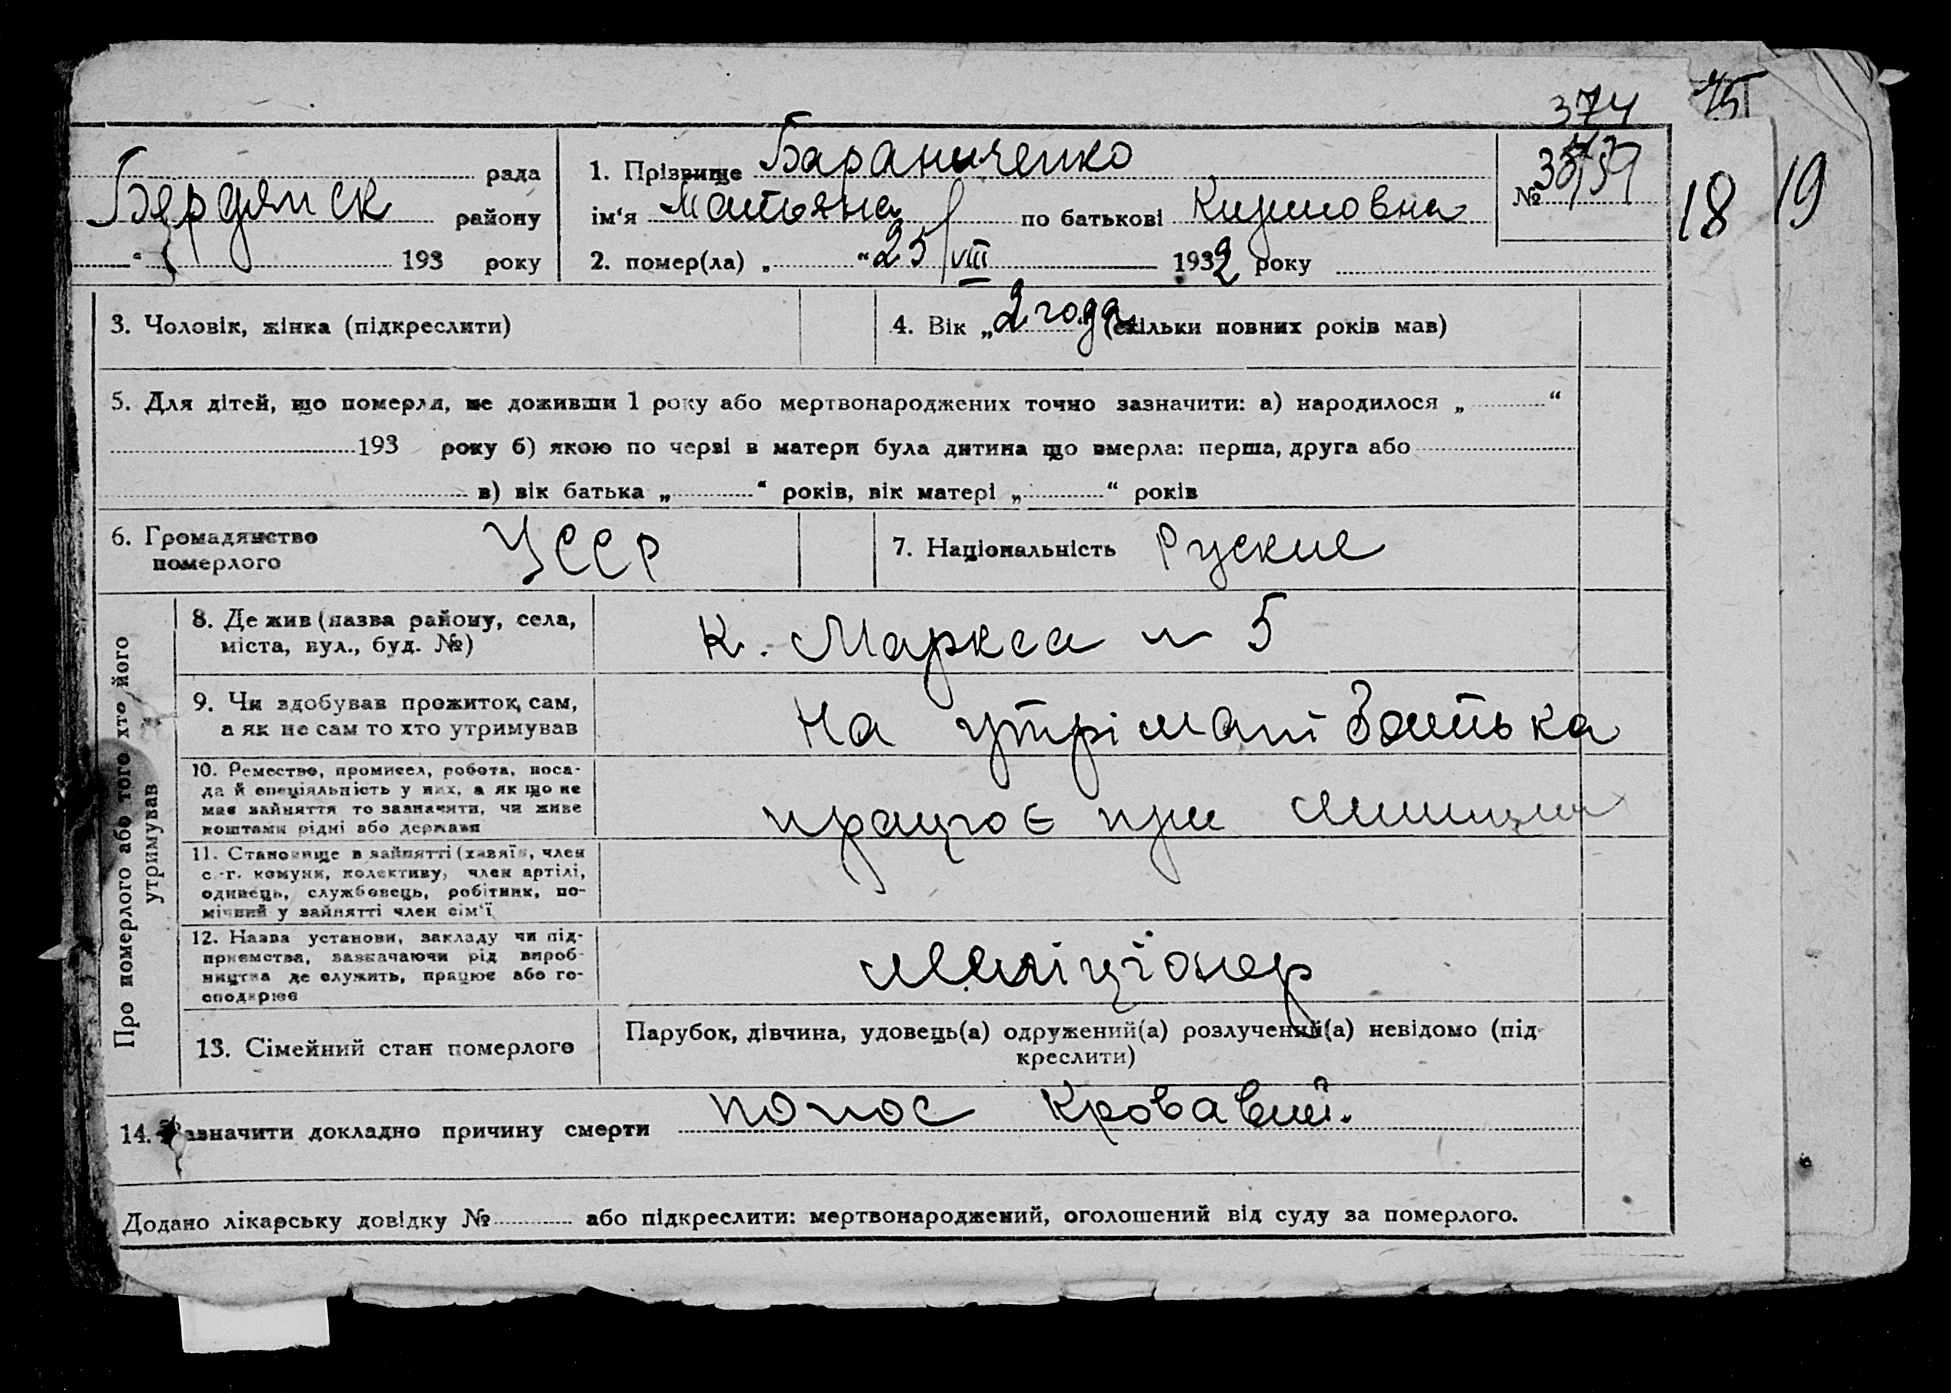 374 15
рада 1. Прізвище Бараниченко
Бердянск району ім‘я Татьяна по батькові Кириловна № 18 19
“ 193 року 2. помер(ла) „ “ 25/VIII 1932 року
3. Чоловік, жінка (підкреслити) 4. Вік „2 года (скільки повних років мав)
5. Для дітей, що померли, не доживши 1 року або мертвонароджених точно зазначити: а) народилося „ “
193 року б) якою по черзі в матери була дитина що вмерла: перша, друга або
в) вік батька „ “ років, вік матері „ “ років
6. Громадянство УССР 7. Національність Руские
померлого
Про померлого або того хто його
утримував
8. Де жив (назва району, села,
міста, вул., буд. №)
К. Маркса № 5
9. Чи здобував прожиток, сам,
а як не сам то хто утримував
На утрімані батька
10. Ремество, промисел, робота, поса-
да й спеціяльність у них, а як що не
має зайняття то зазначити, чи живе
коштами рідні або держави
працює при милиции
11. Становище в зайнятті (хазяїн, член
с.-г. комуни, колективу, член артілі,
одинець, службовець, робітник, по-
мічний у зайнятті член сім‘ї
12. Назва установи, закладу чи під-
приємства, зазначаючи рід вироб-
ництва де служить, працює або го-
сподарює
Міліціонер
13. Сімейний стан померлого
Парубок, дівчина, удовець(а) одружений(а) розлучений(а) невідомо (під-
креслити)
14. Зазначити докладно причину смерти понос кровавий.
Додано лікарську довідку № або підкреслити: мертвонароджений, оголошений від суду за померлого.